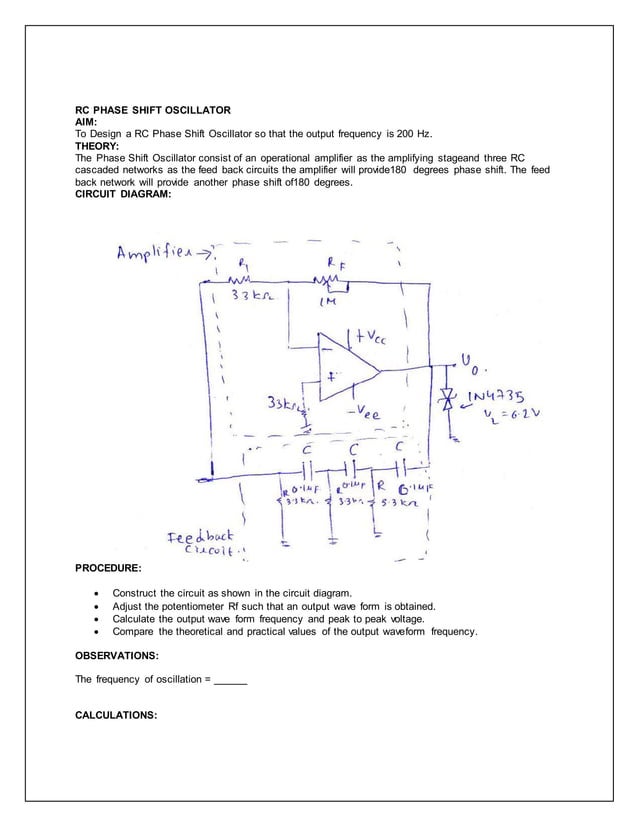 RC PHASE SHIFT OSCILLATOR
AIM:
To Design a RC Phase Shift Oscillator so that the output frequency is 200 Hz.
THEORY:
The Phase Shift Oscillator consist of an operational amplifier as the amplifying stageand three RC
cascaded networks as the feed back circuits the amplifier will provide180 degrees phase shift. The feed
back network will provide another phase shift of180 degrees.
CIRCUIT DIAGRAM:
Amplifier →
R1
RF
33kΩ
1M
+Vcc
-
+
Vo.
33kΩ
-Vee
1N4735
VZ = 6.2V
C C C
R 0.1μF R 0.1μF R 0.1μF
3.3kΩ 3.3kΩ 3.3kΩ
Feedback
Circuit
PROCEDURE:
• Construct the circuit as shown in the circuit diagram.
• Adjust the potentiometer Rf such that an output wave form is obtained.
• Calculate the output wave form frequency and peak to peak voltage.
• Compare the theoretical and practical values of the output waveform frequency.
OBSERVATIONS:
The frequency of oscillation = ______
CALCULATIONS: